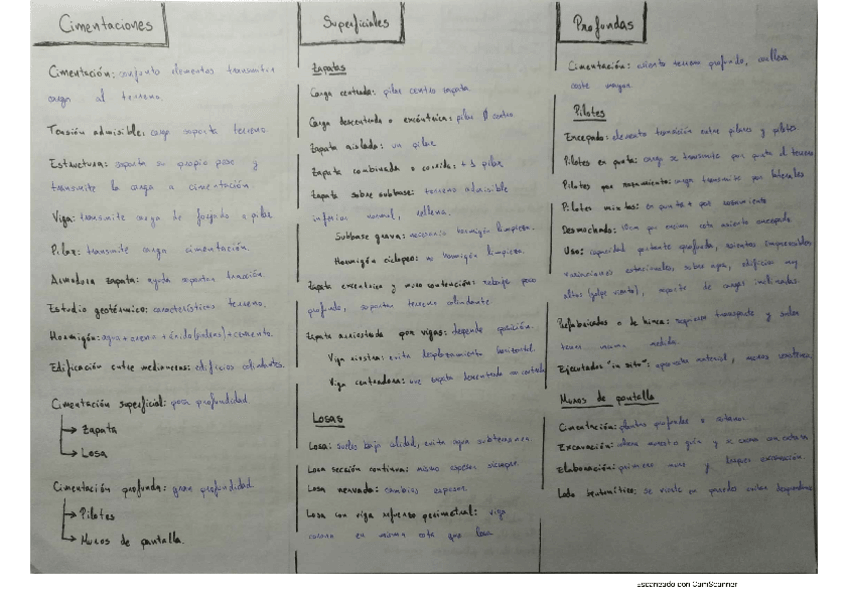 Cimentaciones
Cimentación: conjunto elementos transmiten
carga al terreno.
Tensión admisible: carga soporta terreno.
Estructura: soporta su propio peso y
transmite la carga a cimentación.
Viga: transmite carga de forjado a pilar
Pilar: transmite carga cimentación.
Armadura zapata: ayuda soportar tracción.
Estudio geotérmico: características terreno.
Hormigón: agua + arena + árido (piedras) + cemento.
Edificación entre medianeras: edificios colindantes.
Cimentación superficial: poca profundidad
Zapata
Losa
Cimentación profunda: gran profundidad
Pilotes
Muros de pantalla.
Superficiales
Zapatas
Carga centrada: pilar centro zapata.
Carga descentrada o excéntrica: pilar centro.
Zapata aislada: un pilar
Zapata combinada o corrida: +1 pilar
Zapata sobre subbase: terreno admisible
inferior normal, rellena.
Subbase grava: necesario hormigón limpieza.
Hormigón ciclopeo: no hormigón limpieza.
Zapata excéntrica y muro contención: rebaje poco
profundo, soportar terreno colindante
Zapata arriostrada por vigas: depende posición.
Viga riostra: evita desplazamiento horizontal.
Viga centradora: une zapata descentrada con centrada
Losas
Losa: suelos baja calidad, evita agua subterránea.
Losa sección continua: mismo espesor siempre.
Losa nervada: cambios espesor.
Losa con viga refuerzo perimetral: viga
corona en misma cota que losa
Profundas
Cimentación: asiento terreno profundo, conlleva
coste mayor.
Pilotes
Encepado: elemento transición entre pilares y pilotes.
Pilotes en punta: carga se transmite por punta al terreno
Pilotes por rozamiento: carga transmite por laterales
Pilotes mixtos: en punta + por rozamiento
Desmochado: 10cm por encima cota asiento encepado
Uso: capacidad portante profunda, asientos imprevisibles
variaciones estacionales, sobre agua, edificios muy
altos (golpe viento), soporte de cargas inclinadas.
Prefabricados o de hinca: requieren transporte y suelen
tener misma medida.
Ejecutados "in situ": aprovecha material, menos
Muros de pantalla
Cimentación: plantas profundas o sótanos.
Excavación: muro guía y se excava con
Elaboración: primero muro y después excavación.
Lodo: se vierte en paredes evitar
Escaneado con CamScanner